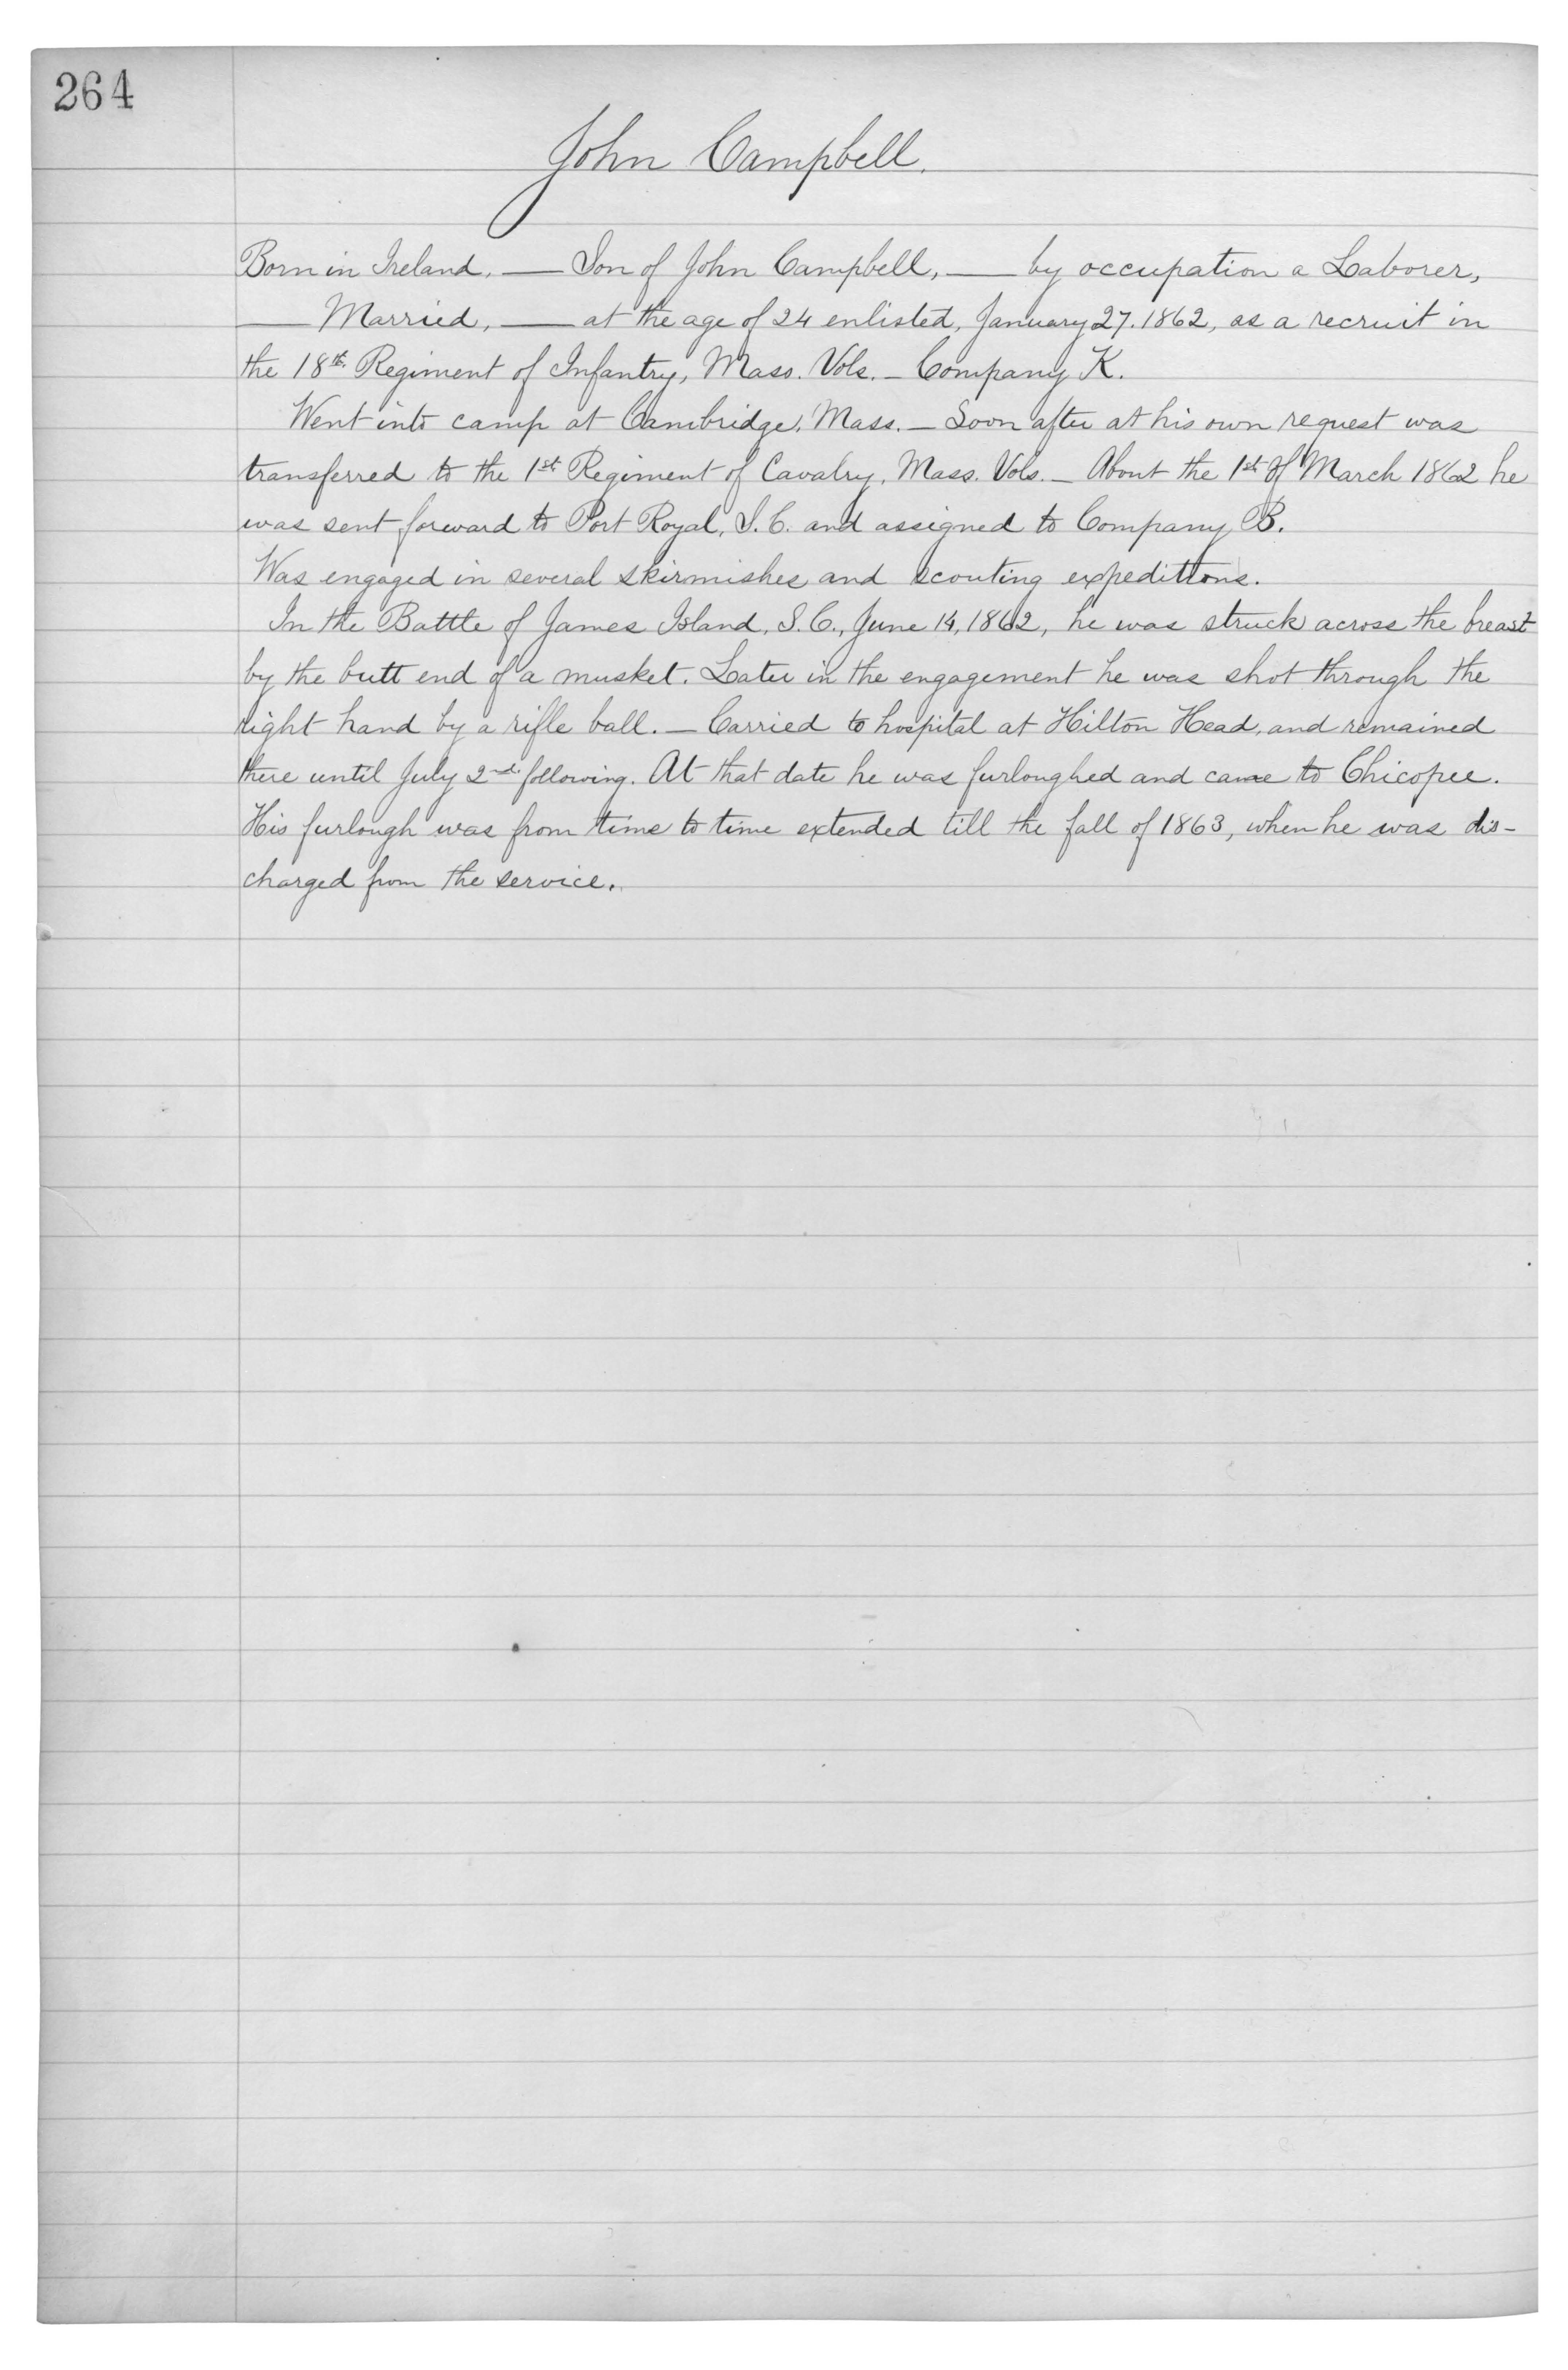 264
John Campbell.
Born in Ireland, — Son of John Campbell, — by occupation a Laborer,
— Married, — at the age of 24 enlisted, January 27. 1862, as a recruit in
the 18th Regiment of Infantry, Mass. Vols. – Company K.
Went into camp at Cambridge, Mass. – Soon after at his own request was
transferred to the 1st Regiment of Cavalry, Mass. Vols. – About the 1st of March 1862 he
was sent forward to Port Royal, S.C. and assigned to Company B.
Was engaged in several skirmishes and scouting expeditions.
In the Battle of James Island, S.C., June 14, 1862, he was struck across the breast
by the butt end of a musket. Later in the engagement he was shot through the
right hand by a rifle ball. – Carried to hospital at Hilton Head, and remained
there until July 2nd following. At that date he was furloughed and came to Chicopee.
His furlough was from time to time extended till the fall of 1863, when he was dis-
charged from the service.